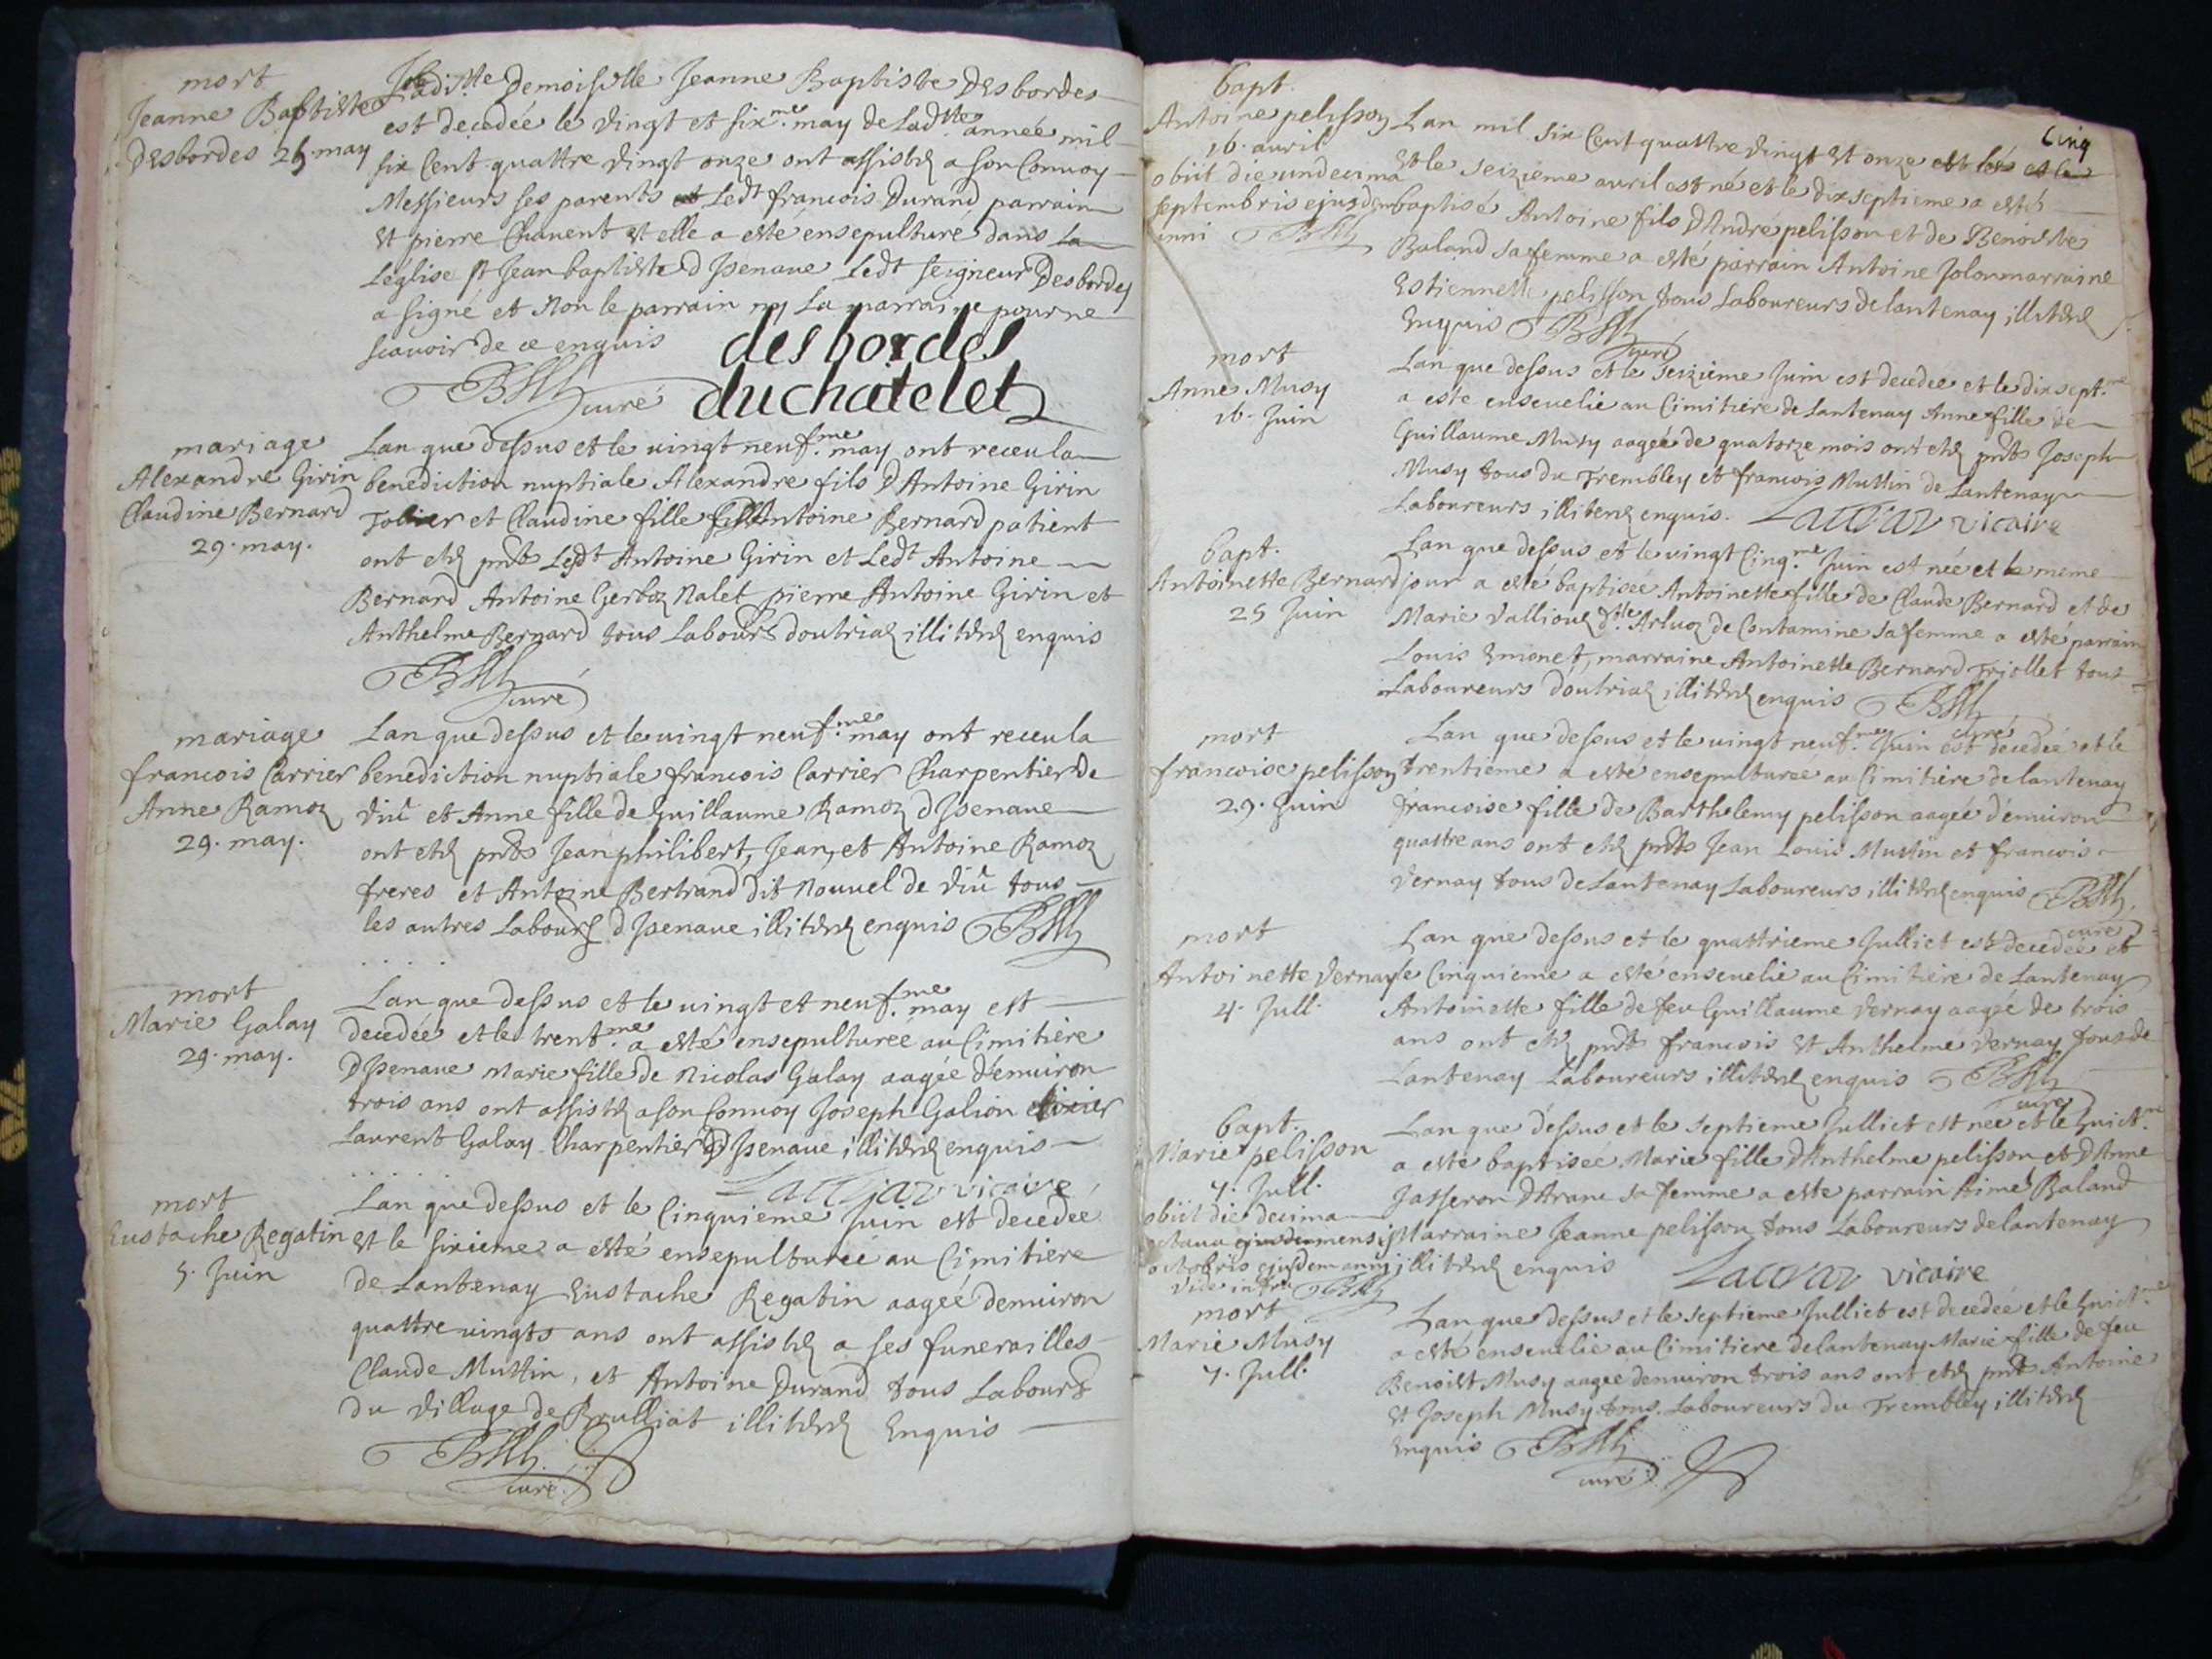 mort
Jeanne Baptiste
Desbordes 26 may
Ladtte Demoiselle Jeanne Baptiste Desbordes
est decedée le vingt et sixme may de Ladtte année mil
six Cent quattre vingt onze ont assistez a son Convoy
Messieurs ses parents Ledt francois Durand parrain
et pierre Chauent et elle a esté ensepulturé dans La
L'église st Jean baptiste d Jsenaue Ledt seigneur Desbordes
a signé et Non le parrain ny La marraine pour ne
scauoir de ce enquis
desbordes
duchatelet
curé
mariage
Alexandre Girin
Claudine Bernard
29. may.
Lan que dessus et le vingt neufme may ont receu la
benediction nuptiale Alexandre fils D Antoine Girin
et Claudine fille Antoine Bernard patient
ont etez pnts Ledt Antoine Girin et Ledt Antoine
Bernard Antoine Gerboz Nalet pierre Antoine Girin et
Anthelme Bernard tous Labours doutriaz illiterez enquis
curé
mariage
francois Carrier
Anne Ramoz
29. may.
Lan que dessus et le vingt neufme may ont receu la
benediction nuptiale francois Carrier Charpentier de
Viũ et Anne fille de Guillaume Ramoz d Jsenaue
ont etez pnts Jean philibert, Jean, et Antoine Ramoz
freres et Antoine Bertrand dit Nouuel de Viũ tous
les autres Labours d Jsenaue illiterez enquis
mort
Marie Galay
29. may.
Lan que dessus et le vingt et neufme may est
decedée et le trentme a esté ensepulturée au Cimitiere
D Jsenaue Marie fille de Nicolas Galay aagée d'enuiron
trois ans ont assistez a son Conuoy Joseph Galion
Laurent Galay Charpentier D Jsenaue illiterez enquis
vicaire
mort
Eustache Regatin
5. Juin
Lan que dessus et le Cinquieme Juin est decedée
et le sixieme a esté ensepulturée au Cimitiere
de Lantenay Eustache Regatin aagée denuiron
quattre vingts ans ont assistez a ses funerailles
Claude Muttin, et Antoine Durand tous Labours
du village de Brulliat illiterez Enquis
curé
Cinq
bapt.
Antoine pelisson
16. auril
obiit die undecima
septembris ejusdem
anni
Lan mil six Cent quattre vingt et onze
et le seizieme auril est né et le dixseptieme a esté
baptisé Antoine fils D'André pelisson et de Benoiste
Baland sa femme a esté parrain Antoine Jolon marraine
Estiennette pelisson tous Laboureurs de lantenay illiterez
Enquis
curé
mort
Anne Musy
16. Juin
Lan que dessus et le seizieme Juin est decedée et le dixseptme
a esté enseuelie au Cimitiere de Lantenay Anne fille de
Guillaume Musy aagée de quatorze mois ont etez pnts Joseph
Musy tous du Trembley et francois Muttin de Lantenay
Laboureurs illiterez enquis.
vicaire
bapt.
Antoinette Bernard
25 Juin
Lan que dessus et le vingt Cinqme Juin est née et le meme
jour a esté baptisée Antoinette fille de Claude Bernard et de
Marie Valliouz dtte Arluoz de Contamine sa femme a esté parrain
Louis Emonet, marraine Antoinette Bernard Triollet tous
Laboureurs d'outriaz illiterez enquis
curé
mort
francoise pelisson
29. Juin
Lan que dessus et le vingt neufme Juin est decedée et le
trentieme a esté ensepulturée au Cimitiere de lantenay
francoise fille de Barthelemy pelisson aagée d'enuiron
quattre ans ont etez pnts Jean Louis Muttin et francois
Vernay tous de Lantenay Laboureurs illiterez enquis
curé
mort
Antoinette Vernay
4. Jull.
Lan que dessus et le quattrieme Julliet est decedée et
le Cinquieme a esté enseuelie au Cimitiere de Lantenay
Antoinette fille de feu Guillaume Vernay aagée de trois
ans ont etez pnts francois et Anthelme Vernay tous de
Lantenay Laboureurs illiterez enquis
curé
bapt.
Marie pelisson
7. Jull.
obiit die decima
octaua mensis
octobris ejusdem anni
vide infra
Lan que dessus et le septieme Julliet est née et le huictme
a esté baptisée Marie fille D'Anthelme pelisson et D'Anne
Jasseron D'Aranc sa femme a esté parrain Aimé Baland
Marraine Jeanne pelisson tous Laboureurs de lantenay
illiterez enquis
vicaire
mort
Marie Musy
7. Jull.
Lan que dessus et le septieme Julliet est decedée et le huictme
a esté enseuelie au Cimitiere de lantenay Marie fille de feu
Benoist Musy aagée denuiron trois ans ont etez pnts Antoine
et Joseph Musy tous Laboureurs du Trembley illiterez
enquis
curé